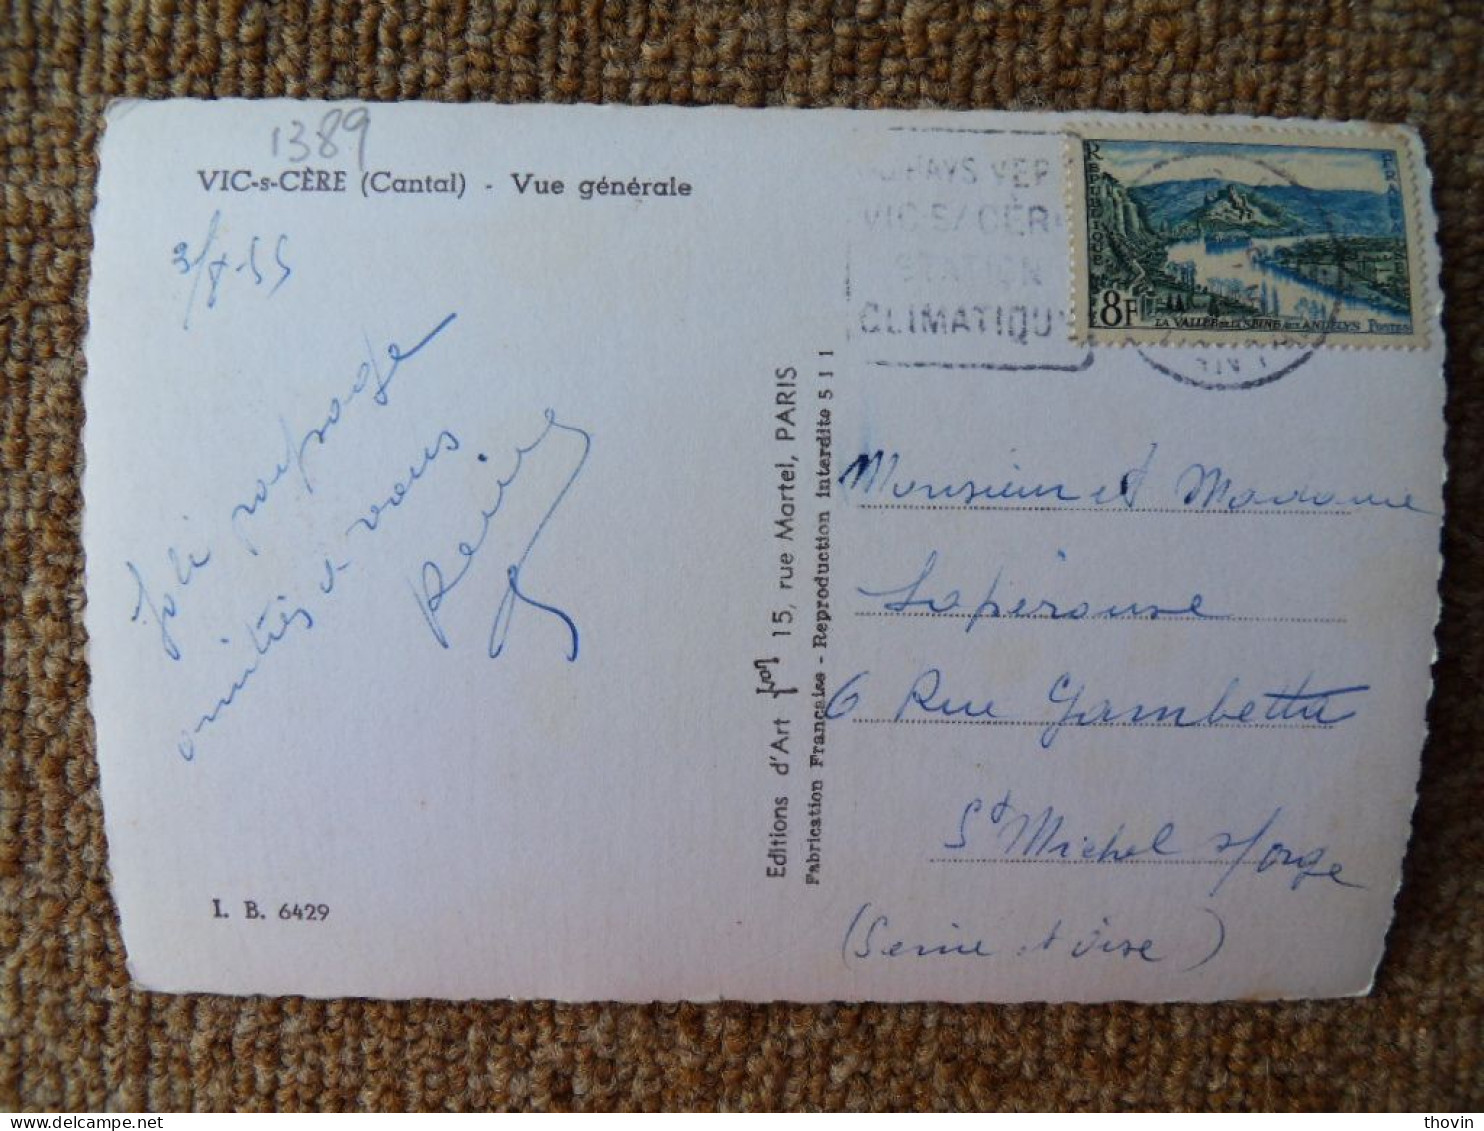 1389
VIC-s-CÈRE (Cantal) - Vue générale
3/8-55
Joli paysage
amitiés à vous
I. B. 6429
Editions d'Art Yvon 15, rue Martel, PARIS
Fabrication Française - Reproduction interdite 511
PAYS VER
VIC S/CÈR
STATION
CLIMATIQU
RÉPUBLIQUE FRANÇAISE
8F
LA VALLÉE DE LA SEINE AUX ANDELYS POSTES
Monsieur et Madame
Lapérouse
6 Rue Gambetta
St Michel s/orge
(Seine et Oise)
thovin